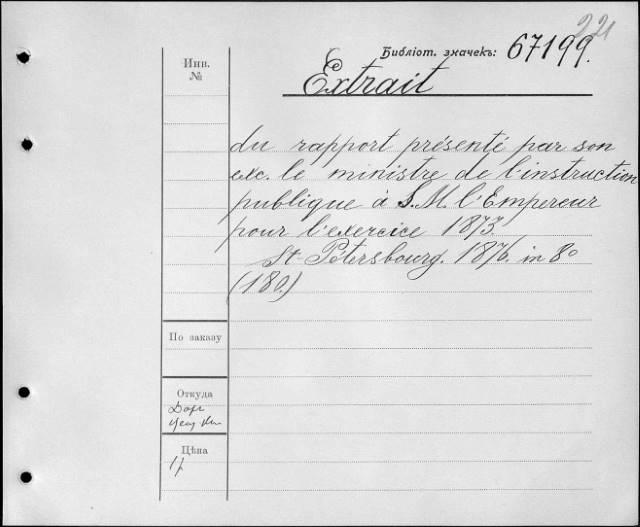 221
Библіот. значекъ: 67199.
Инв.
№
Extrait
du rapport présenté par son
exc. le ministre de l'instruction
publique à S.M. l'Empereur
pour l'exercice 1873.
St-Petersbourg. 1876. in 8º
(180.)
По заказу
Откуда
Цѣна